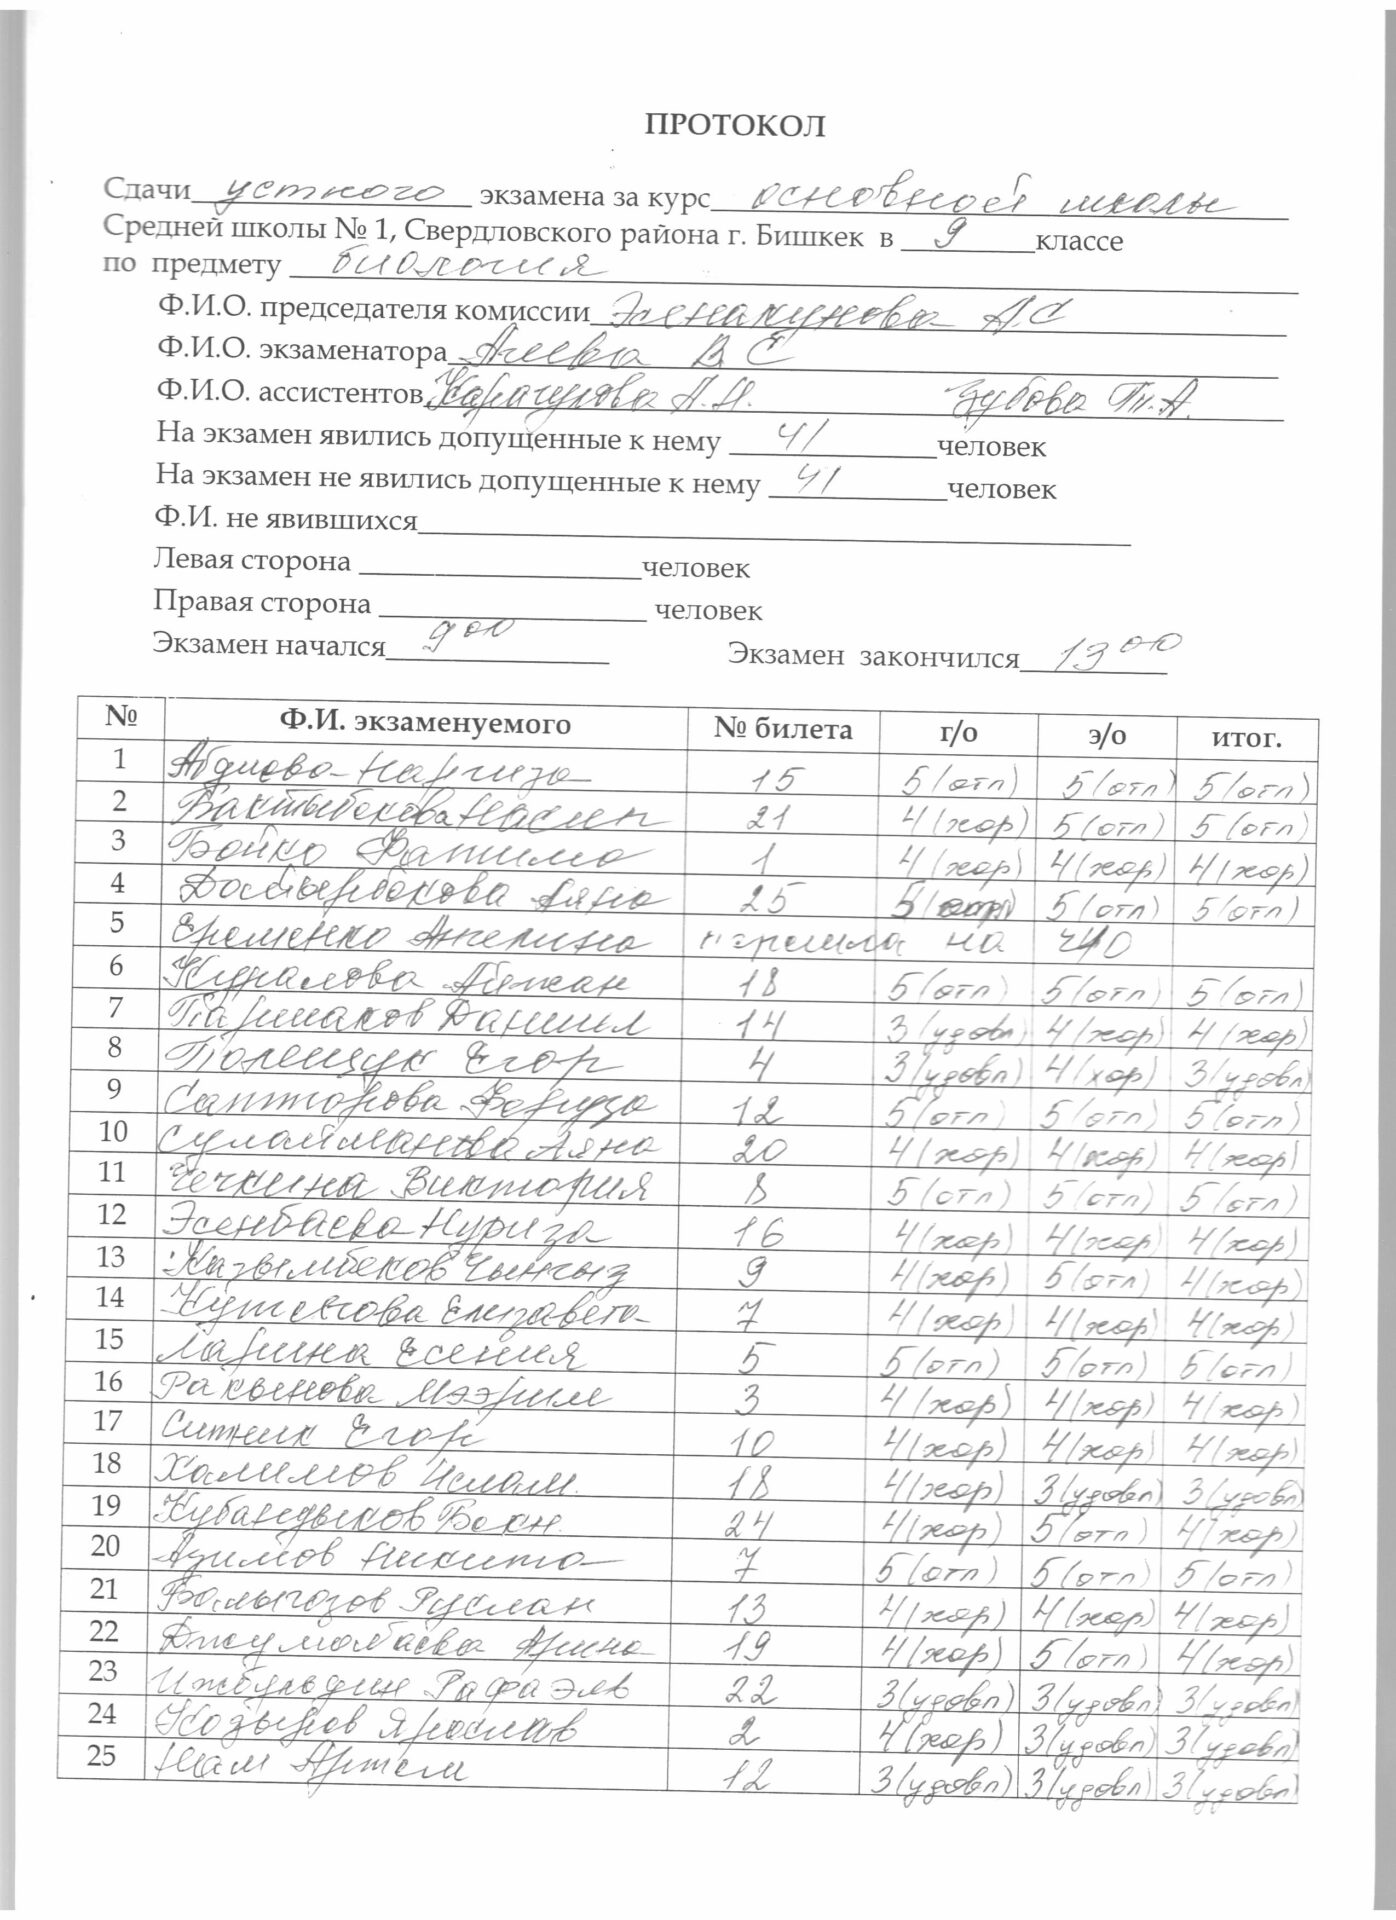 ПРОТОКОЛ
Сдачи устного экзамена за курс основной школы
Средней школы № 1, Свердловского района г. Бишкек в 9 классе
по предмету биология
Ф.И.О. председателя комиссии Эсенакунова А С
Ф.И.О. экзаменатора В С
Ф.И.О. ассистентов Зубова Т.А.
На экзамен явились допущенные к нему 41 человек
На экзамен не явились допущенные к нему 41 человек
Ф.И. не явившихся
Левая сторона человек
Правая сторона человек
Экзамен начался 9 00 Экзамен закончился 13 00
№ Ф.И. экзаменуемого № билета г/о э/о итог.
1 Наргиза 15 5 (отл) 5 (отл) 5 (отл)
2 Бактыбекова 21 4 (хор) 5 (отл) 5 (отл)
3 Бойко Фатима 1 4 (хор) 4 (хор) 4 (хор)
4 Аяна 25 5 5 (отл) 5 (отл)
5 Еременко Ангелина перешла на
6 Айжан 18 5 (отл) 5 (отл) 5 (отл)
7 Даниил 14 3 (удовл) 4 (хор) 4 (хор)
8 Полещук Егор 4 3 (удовл) 4 (хор) 3 (удовл)
9 Саттарова Фарида 12 5 (отл) 5 (отл) 5 (отл)
10 Сулайманова Аяна 20 4 (хор) 4 (хор) 4 (хор)
11 Чечкина Виктория 8 5 (отл) 5 (отл) 5 (отл)
12 Эсенбаева Нуриза 16 4 (хор) 4 (хор) 4 (хор)
13 Казымбеков Чынгыз 9 4 (хор) 5 (отл) 4 (хор)
14 Елизавета 7 4 (хор) 4 (хор) 4 (хор)
15 Ларина Есения 5 5 (отл) 5 (отл) 5 (отл)
16 Мээрим 3 4 (хор) 4 (хор) 4 (хор)
17 Ситник Егор 10 4 (хор) 4 (хор) 4 (хор)
18 Халимов Ислам 18 4 (хор) 3 (удовл) 3 (удовл)
19 Кубандыков 24 4 (хор) 5 (отл) 4 (хор)
20 Азимов Никита 7 5 (отл) 5 (отл) 5 (отл)
21 Руслан 13 4 (хор) 4 (хор) 4 (хор)
22 Джумабаева Арина 19 4 (хор) 5 (отл) 4 (хор)
23 Ижбульдин Рафаэль 22 3 (удовл) 3 (удовл) 3 (удовл)
24 Козырев Ярослав 2 4 (хор) 3 (удовл) 3 (удовл)
25 Артем 12 3 (удовл) 3 (удовл) 3 (удовл)